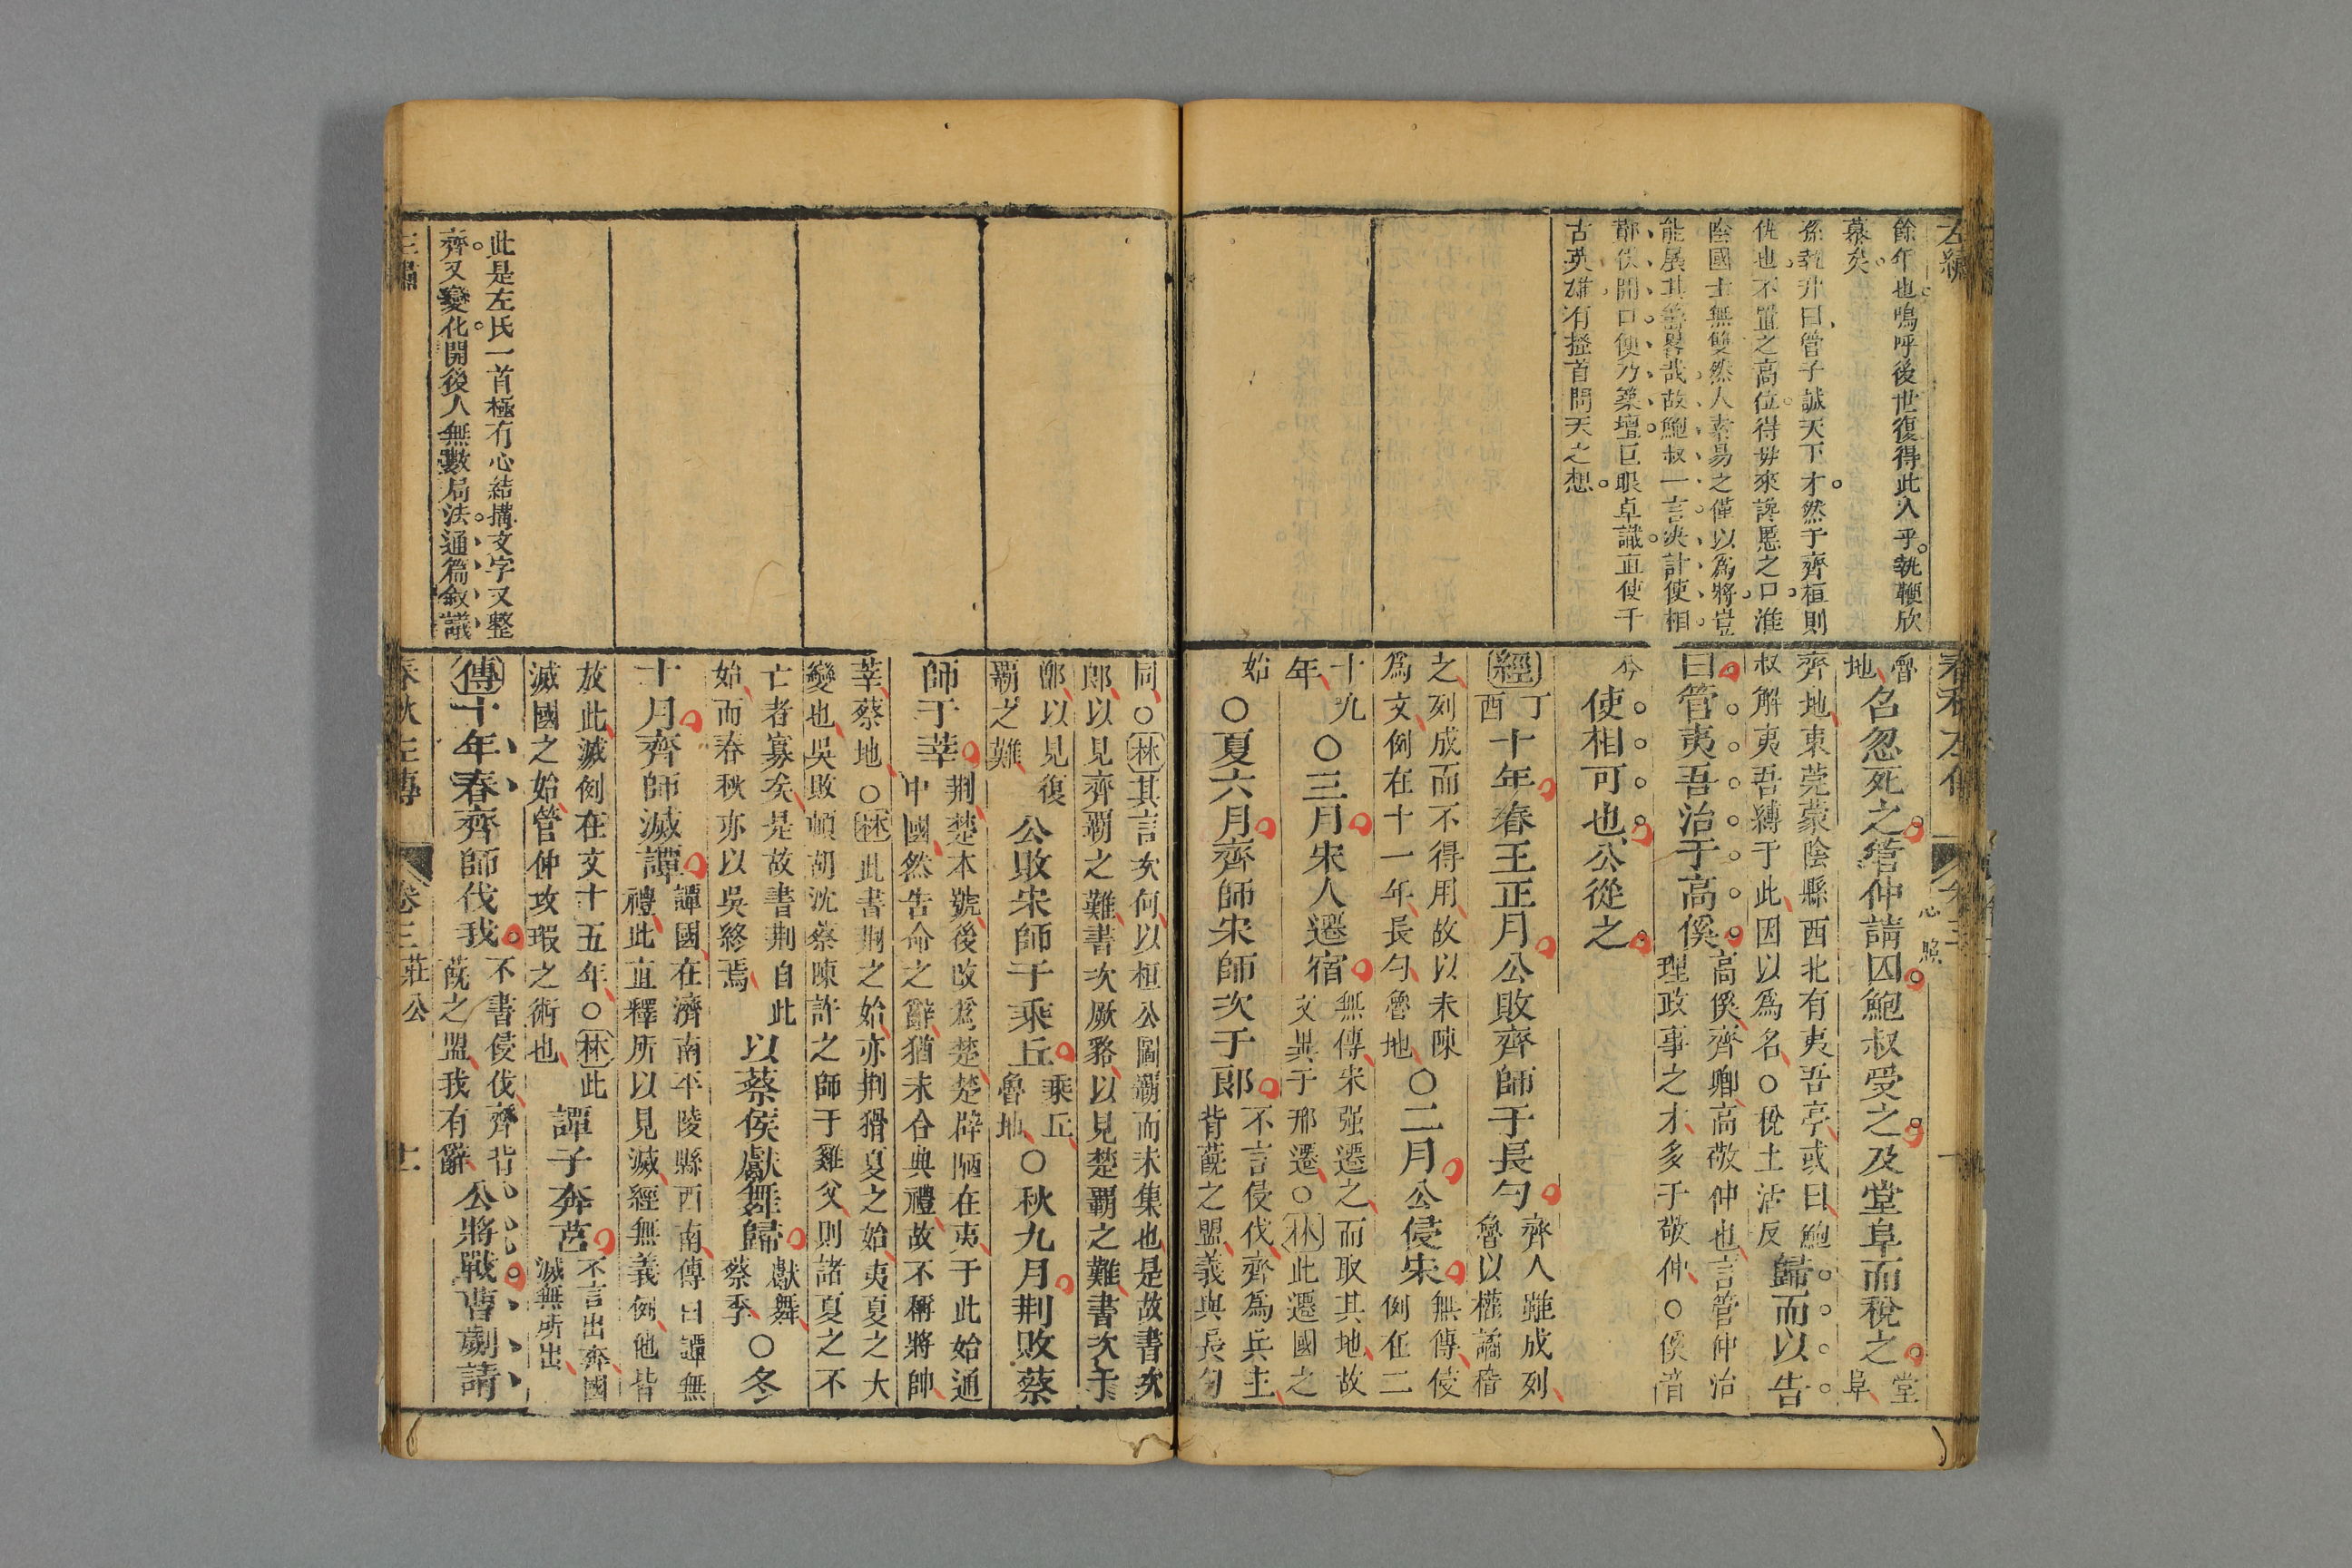 餘年也嗚呼後世復得此人乎執鞭欣
慕矣
孫執升曰管子誠天下才然于齊桓則
仇也不置之高位得毋來讒慝之口淮
陰國士無雙然人素易之僅以爲將豈
能展其籌畧哉故鮑叔一言決計使相
酇侯開口便乃築壇巨眼卓識直使千
古英雄有搔首問天之想
魯地
召忽死之管仲請囚鮑叔受之及堂阜而稅之
堂阜
齊地東莞蒙陰縣西北有夷吾亭或曰鮑
叔解夷吾縛于此因以爲名○稅土活反
歸而以告
曰管夷吾治于高傒
高傒齊卿高敬仲也言管仲治
理政事之才多于敬仲○傒音
兮
使相可也公從之
經
丁酉
十年春王正月公敗齊師于長勺
齊人雖成列
魯以權譎稽
之列成而不得用故以未陳
爲文例在十一年長勺魯地
○二月公侵宋
無傳侵
例在二
十九
年
○三月宋人遷宿
無傳宋强遷之而取其地故
文異于邢遷○林此遷國之
始
○夏六月齊師宋師次于郎
不言侵伐齊爲兵主
背蔇之盟義與長勺
同○林其言次何以桓公圖霸而未集也是故書次
郎以見齊霸之難書次厥貉以見楚霸之難書次于
鄎以見復
霸之難
公敗宋師于乘丘
乘丘
魯地
○秋九月荆敗蔡
師于莘
荆楚本號後改爲楚楚辟陋在夷于此始通
中國然告命之辭猶未合典禮故不稱將帥
莘蔡地○林此書荆之始亦荆猾夏之始夷夏之大
變也吳敗頓胡沈蔡陳許之師于雞父則諸夏之不
亡者寡矣是故書荆自此
始而春秋亦以吳終焉
以蔡侯獻舞歸
獻舞
蔡季
○冬
十月齊師滅譚
譚國在濟南平陵縣西南傳曰譚無
禮此直釋所以見滅經無義例他皆
放此滅例在文十五年○林此
滅國之始管仲攻瑕之術也
譚子奔莒
不言出奔國
滅無所出
傳十年春齊師伐我
不書侵伐齊背
蔇之盟我有辭
公將戰曹劌請
此是左氏一首極有心結搆文字又整
齊又變化開後人無數局法通篇叙議
春秋左傳
卷三莊公
十一